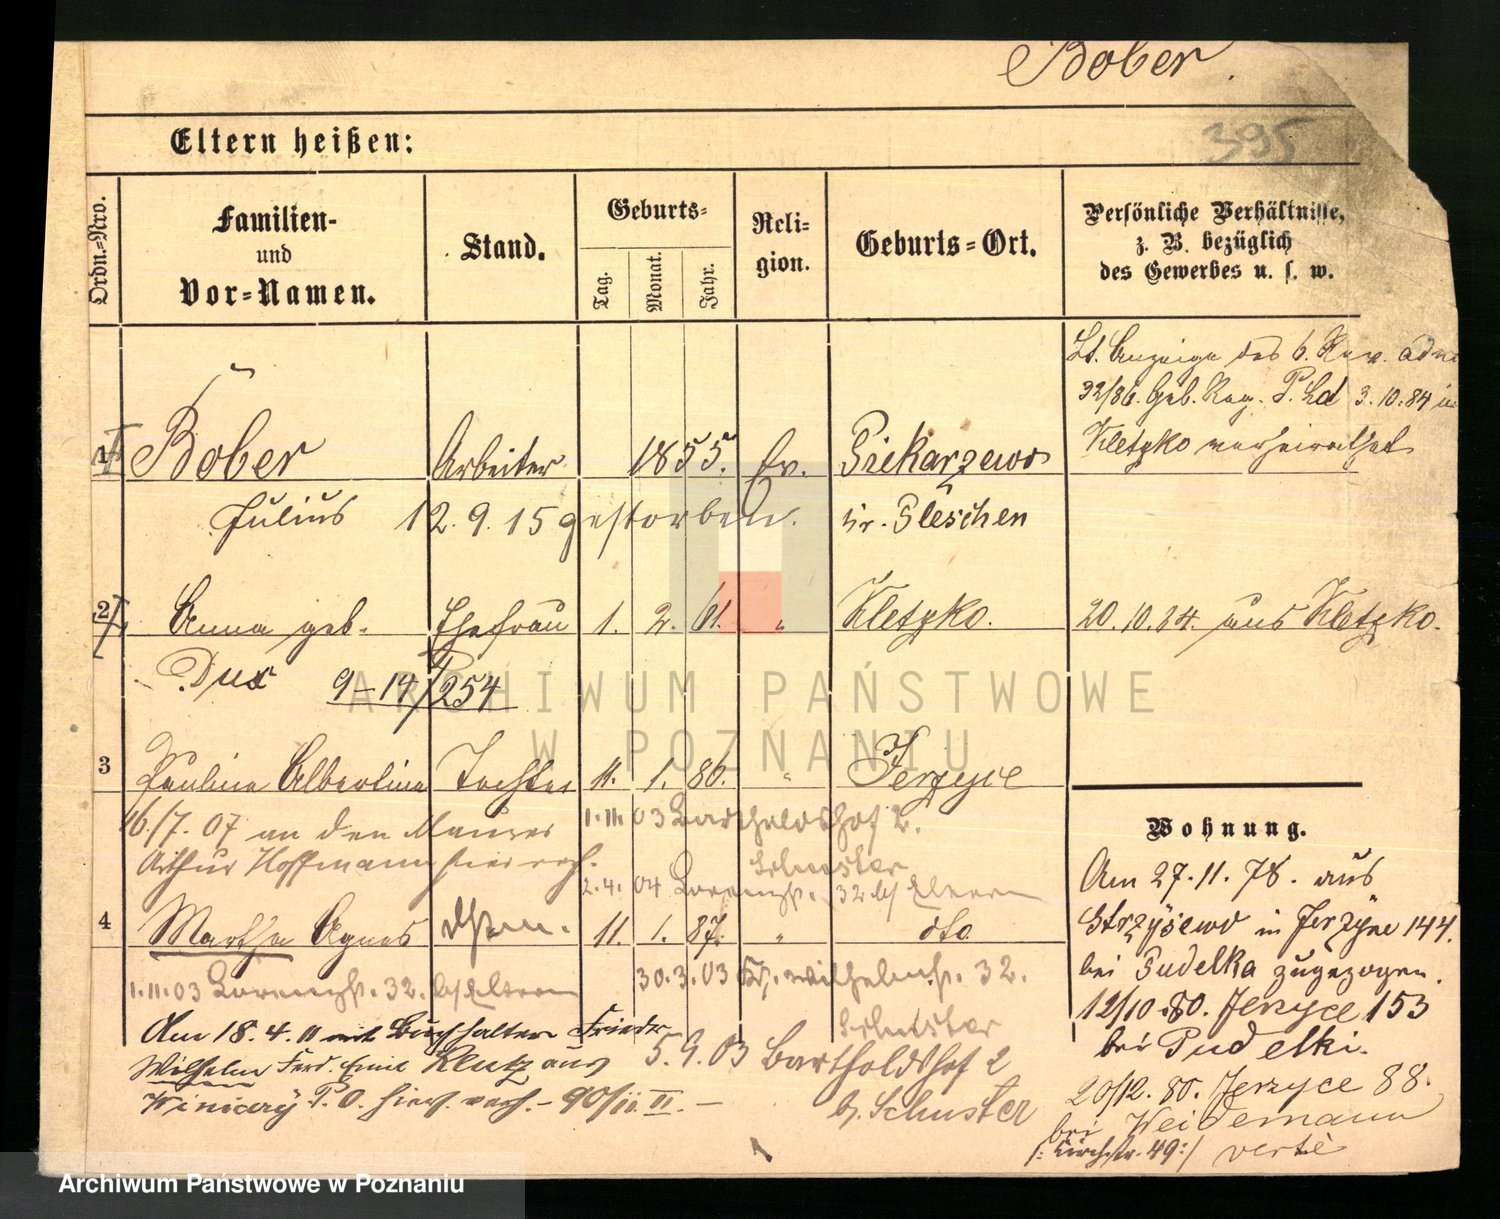 Bober.
395
Eltern heißen:
Ordn.-Nro.
Familien-
und
Vor-Namen.
Stand.
Geburts-
Tag.
Monat.
Jahr.
Reli-
gion.
Geburts-Ort.
Persönliche Verhältnisse,
z. B. bezüglich
des Gewerbes u. s. w.
Lt. Anzeige des 6. Rev.
32/86. Geb. Reg. P. Ld 3.10.84 in
Kletzko verheirathet
1 Bober Arbeiter 1855. Ev. Piekarzewo
Julius 12.9.15 gestorben. Kr. Pleschen
2 Anna geb. Ehefrau 1. 2. 61. " Kletzko. 20.10.84. aus Kletzko.
Dux 9-14/254
3 Pauline Albertine Tochter 11. 1. 86. " Jerzyce
16./7. 07 an den Maurer
Arthur Hoffmann hier verh.
1.11.03 Bartholdshof 2.
Schuster
2.4.04 Lorenzstr. 32 b/ Eltern
4 Martha Agnes dto. 11. 1. 87. " dto
1.11.03 Lorenzstr. 32. b/ Eltern
30.3.03 Kr. Wilhelmstr. 32.
Schuster
Am 18.4.11 mit Buchhalter Friedr
Wilhelm Ferd. Emil Klutz aus
P.O. hier verh. -
5.9.03 Bartholdshof 2
b. Schuster
Wohnung.
Am 27.11.78. aus
Strzysewo in Jerzyce 144.
bei Pudelka zugezogen.
12/10.80. Jerzyce 153
bei Pudelki.
20/12.80. Jerzyce 88.
bei Weidemann
/: Kirchstr. 49:/ verte
ARCHIWUM PAŃSTWOWE
W POZNANIU
Archiwum Państwowe w Poznaniu